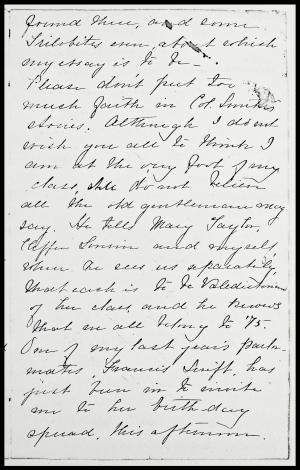 found there, and some
Trilobites even, about which
my essay is to be —.
Please don't put too
much faith in Col. Smith's
stories. Although I do not
wish you all to think I
am at the very foot of my
class, still do not believe
all the old gentleman may
say. He tells Mary Taylor,
and myself,
when he sees us separately,
that each is to be Valedictorian
of her class, and he knows
that we all belong to '75.
One of my last year's parlor-
mates, Francis Swift, has
just been in to invite
me to her birth-day
spread, this afternoon.